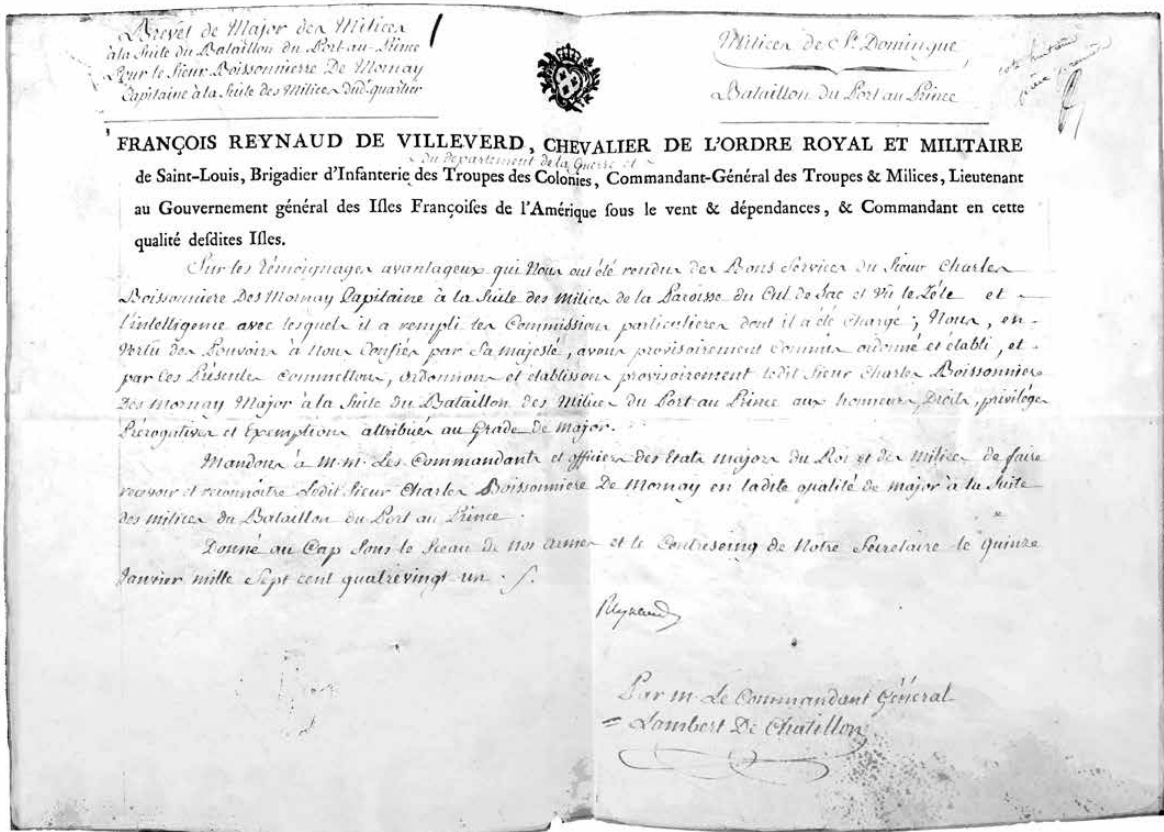 Brevet de Major des Milices
à la Suite du Bataillon du Port-au-Prince
Pour le Sieur Boissonnierre De Mornay
Capitaine à la Suite des Milices dud. quartier
Milices de St. Domingue
Bataillon du Port au Prince
cote huitieme
FRANÇOIS REYNAUD DE VILLEVERD, CHEVALIER DE L'ORDRE ROYAL ET MILITAIRE
du departement de la Guerre et
de Saint-Louis, Brigadier d'Infanterie des Troupes des Colonies, Commandant-Général des Troupes & Milices, Lieutenant
au Gouvernement général des Iſles Françoiſes de l'Amérique ſous le vent & dépendances, & Commandant en cette
qualité deſdites Iſles.
Sur les témoignages avantageux qui Nous ont été rendus des Bons Services du Sieur Charles
Boissonniere Des Mornay Capitaine à la Suite des milices de la Paroisse du Cul de Sac et Vu le Zéle et
l'intelligence avec lesquels il a rempli les Commissions particulieres dont il a été chargé; Nous, en
Vertu des Pouvoirs à Nous Confiés par Sa majesté, avons provisoirement Commis ordonné et établi, et
par ces Présentes Commettons, ordonnons et établissons provisoirement ledit Sieur Charles Boissonniere
Des Mornay Major à la Suite du Bataillon des Milices du Port au Prince aux honneurs, Droits, privileges
Prérogatives et Exemptions attribués au Grade de Major.
Mandons à M.M. Les Commandants et officiers des Etats majors du Roi et des Milices de faire
recevoir et reconnoitre Ledit Sieur Charles Boissonniere De Mornay en ladite qualité de major à la Suite
des milices du Bataillon du Port au Prince.
Donné au Cap Sous le Sceau de nos armes et le Contreseing de Notre Secretaire le Quinze
Janvier mille Sept cent quatrevingt un.
Reynaud
Par M. Le Commandant Général
Lambert De Chatillon